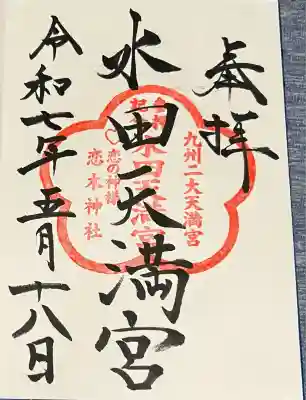 奉拝
九州二大天満宮
水田天満宮
恋の神様
恋木神社
令和七年五月十八日